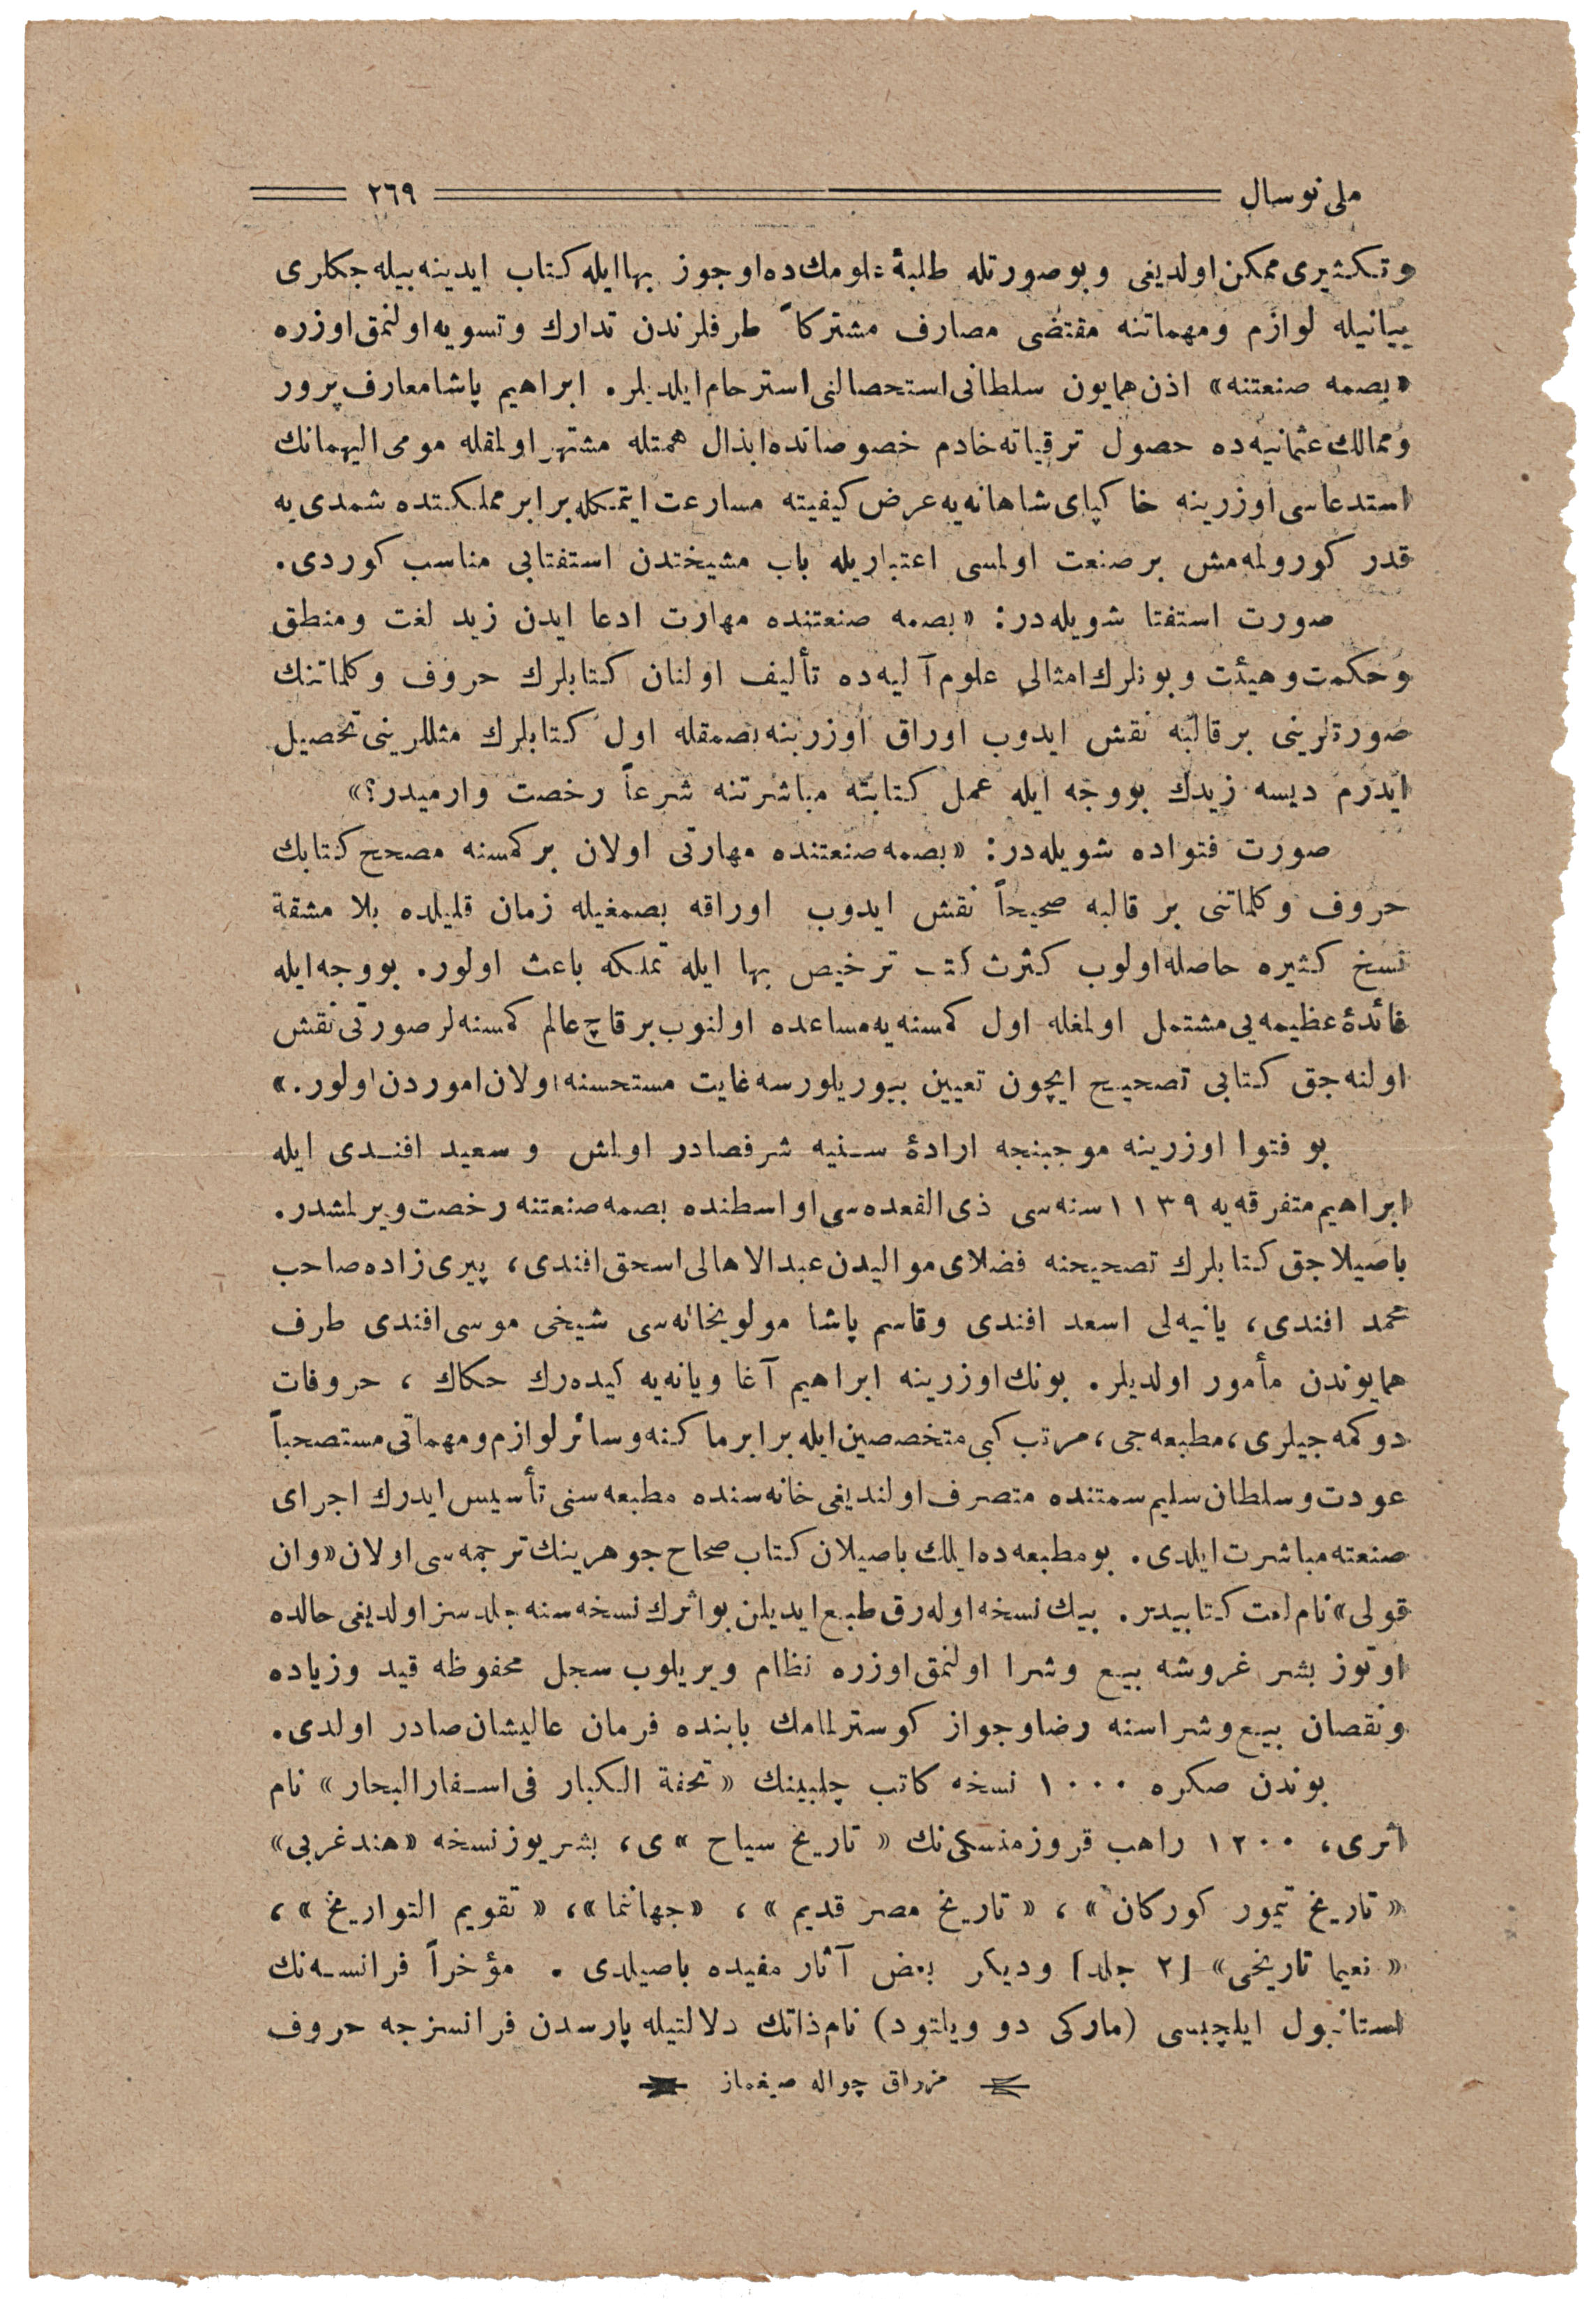 ملی نوسال ٢٦٩
وتكثیری ممكن اولدیغی وبوصورتله طلبۀ علومك ده اوجوز بها ایله كتاب ایدینه بیله جكلری
بیانیله لوازم ومهماتنه مقتضی مصارف مشتركاً طرفلرندن تدارك وتسویه اولنمق اوزره
«بصمه صنعتنه» اذن همایون سلطانی استحصالنی استرحام ایلدیلر. ابراهیم پاشا معارف پرور
وممالك عثمانیه ده حصول ترقیاته خادم خصوصاتده ابذال همتله مشتهر اولمقله مومی الیهمانك
استدعاسی اوزرینه خاكپای شاهانه یه عرض كیفیته مسارعت ایتمكله برابر مملكتده شمدی یه
قدر كورولمه مش بر صنعت اولمسی اعتباریله باب مشیختدن استفتایی مناسب كوردی.
صورت استفتا شویله در: «بصمه صنعتنده مهارت ادعا ایدن زید لغت ومنطق
وحكمت وهیئت وبونلرك امثالی علوم آلیه ده تألیف اولنان كتابلرك حروف وكلماتنك
صورتلرینی بر قالبه نقش ایدوب اوراق اوزرینه بصمقله اول كتابلرك مثللرینی تحصیل
ایدرم دیسه زیدك بووجه ایله عمل كتابته مباشرتنه شرعاً رخصت وارمیدر؟»
صورت فتواده شویله در: «بصمه صنعتنده مهارتی اولان بر كمسنه مصحح كتابك
حروف وكلماتنی بر قالبه صحیحاً نقش ایدوب اوراقه بصمغیله زمان قلیلده بلا مشقة
نسخ كثیره حاصله اولوب كثرت كتب ترخیص بها ایله تملكه باعث اولور. بووجه ایله
فائدۀ عظیمه یی مشتمل اولمغله اول كمسنه یه مساعده اولنوب بر قاچ عالم كمسنه لر صورتی نقش
اولنه جق كتابی تصحیح ایچون تعیین بیوریلورسه غایت مستحسنه اولان اموردن اولور.»
بو فتوا اوزرینه موجبنجه ارادۀ سنیه شرفصادر اولمش و سعید افندی ایله
ابراهیم متفرقه یه ١١٣٩ سنه سی ذی القعده سی اواسطنده بصمه صنعتنه رخصت ویرلمشدر.
باصیلاجق كتابلرك تصحیحنه فضلای موالیدن عبدالاهالی اسحق افندی، پیری زاده صاحب
محمد افندی، یانیه لی اسعد افندی وقاسم پاشا مولویخانه سی شیخی موسی افندی طرف
همایوندن مأمور اولدیلر. بونك اوزرینه ابراهیم آغا ویانه یه كیده رك حكاك ، حروفات
دوكمه جیلری، مطبعه جی، مرتب كبی متخصصین ایله برابر ماكنه وسائر لوازم ومهماتی مستصحباً
عودت وسلطان سلیم سمتنده متصرف اولندیغی خانه سنده مطبعه سنی تأسیس ایدرك اجرای
صنعته مباشرت ایلدی. بو مطبعه ده ایلك باصیلان كتاب صحاح جوهرینك ترجمه سی اولان «وان
قولی» نام لغت كتابیدر. بیك نسخه اوله رق طبع ایدیلن بو اثرك نسخه سنه جلدسز اولدیغی حالده
اوتوز بشر غروشه بیع وشرا اولنمق اوزره نظام ویریلوب سجل محفوظه قید وزیاده
ونقصان بیع وشراسنه رضا وجواز كوسترلمامك بابنده فرمان عالیشان صادر اولدی.
بوندن صكره ١٠٠٠ نسخه كاتب چلبینك «تحفة الكبار فی اسفار البحار» نام
اثری، ١٢٠٠ راهب قروزمنسكی نك «تاریخ سیاح»ی، بشر یوز نسخه «هند غربی»
«تاریخ تیمور كوركان» ، «تاریخ مصر قدیم» ، «جهاننما»، «تقویم التواریخ» ،
«نعیما تاریخی» [٢ جلد] ودیكر بعض آثار مفیده باصیلدی . مؤخراً فرانسه نك
استانبول ایلچیسی (ماركی دو ویلنود) نام ذاتك دلالتیله پارسدن فرانسزجه حروف
مزراق چواله صیغماز